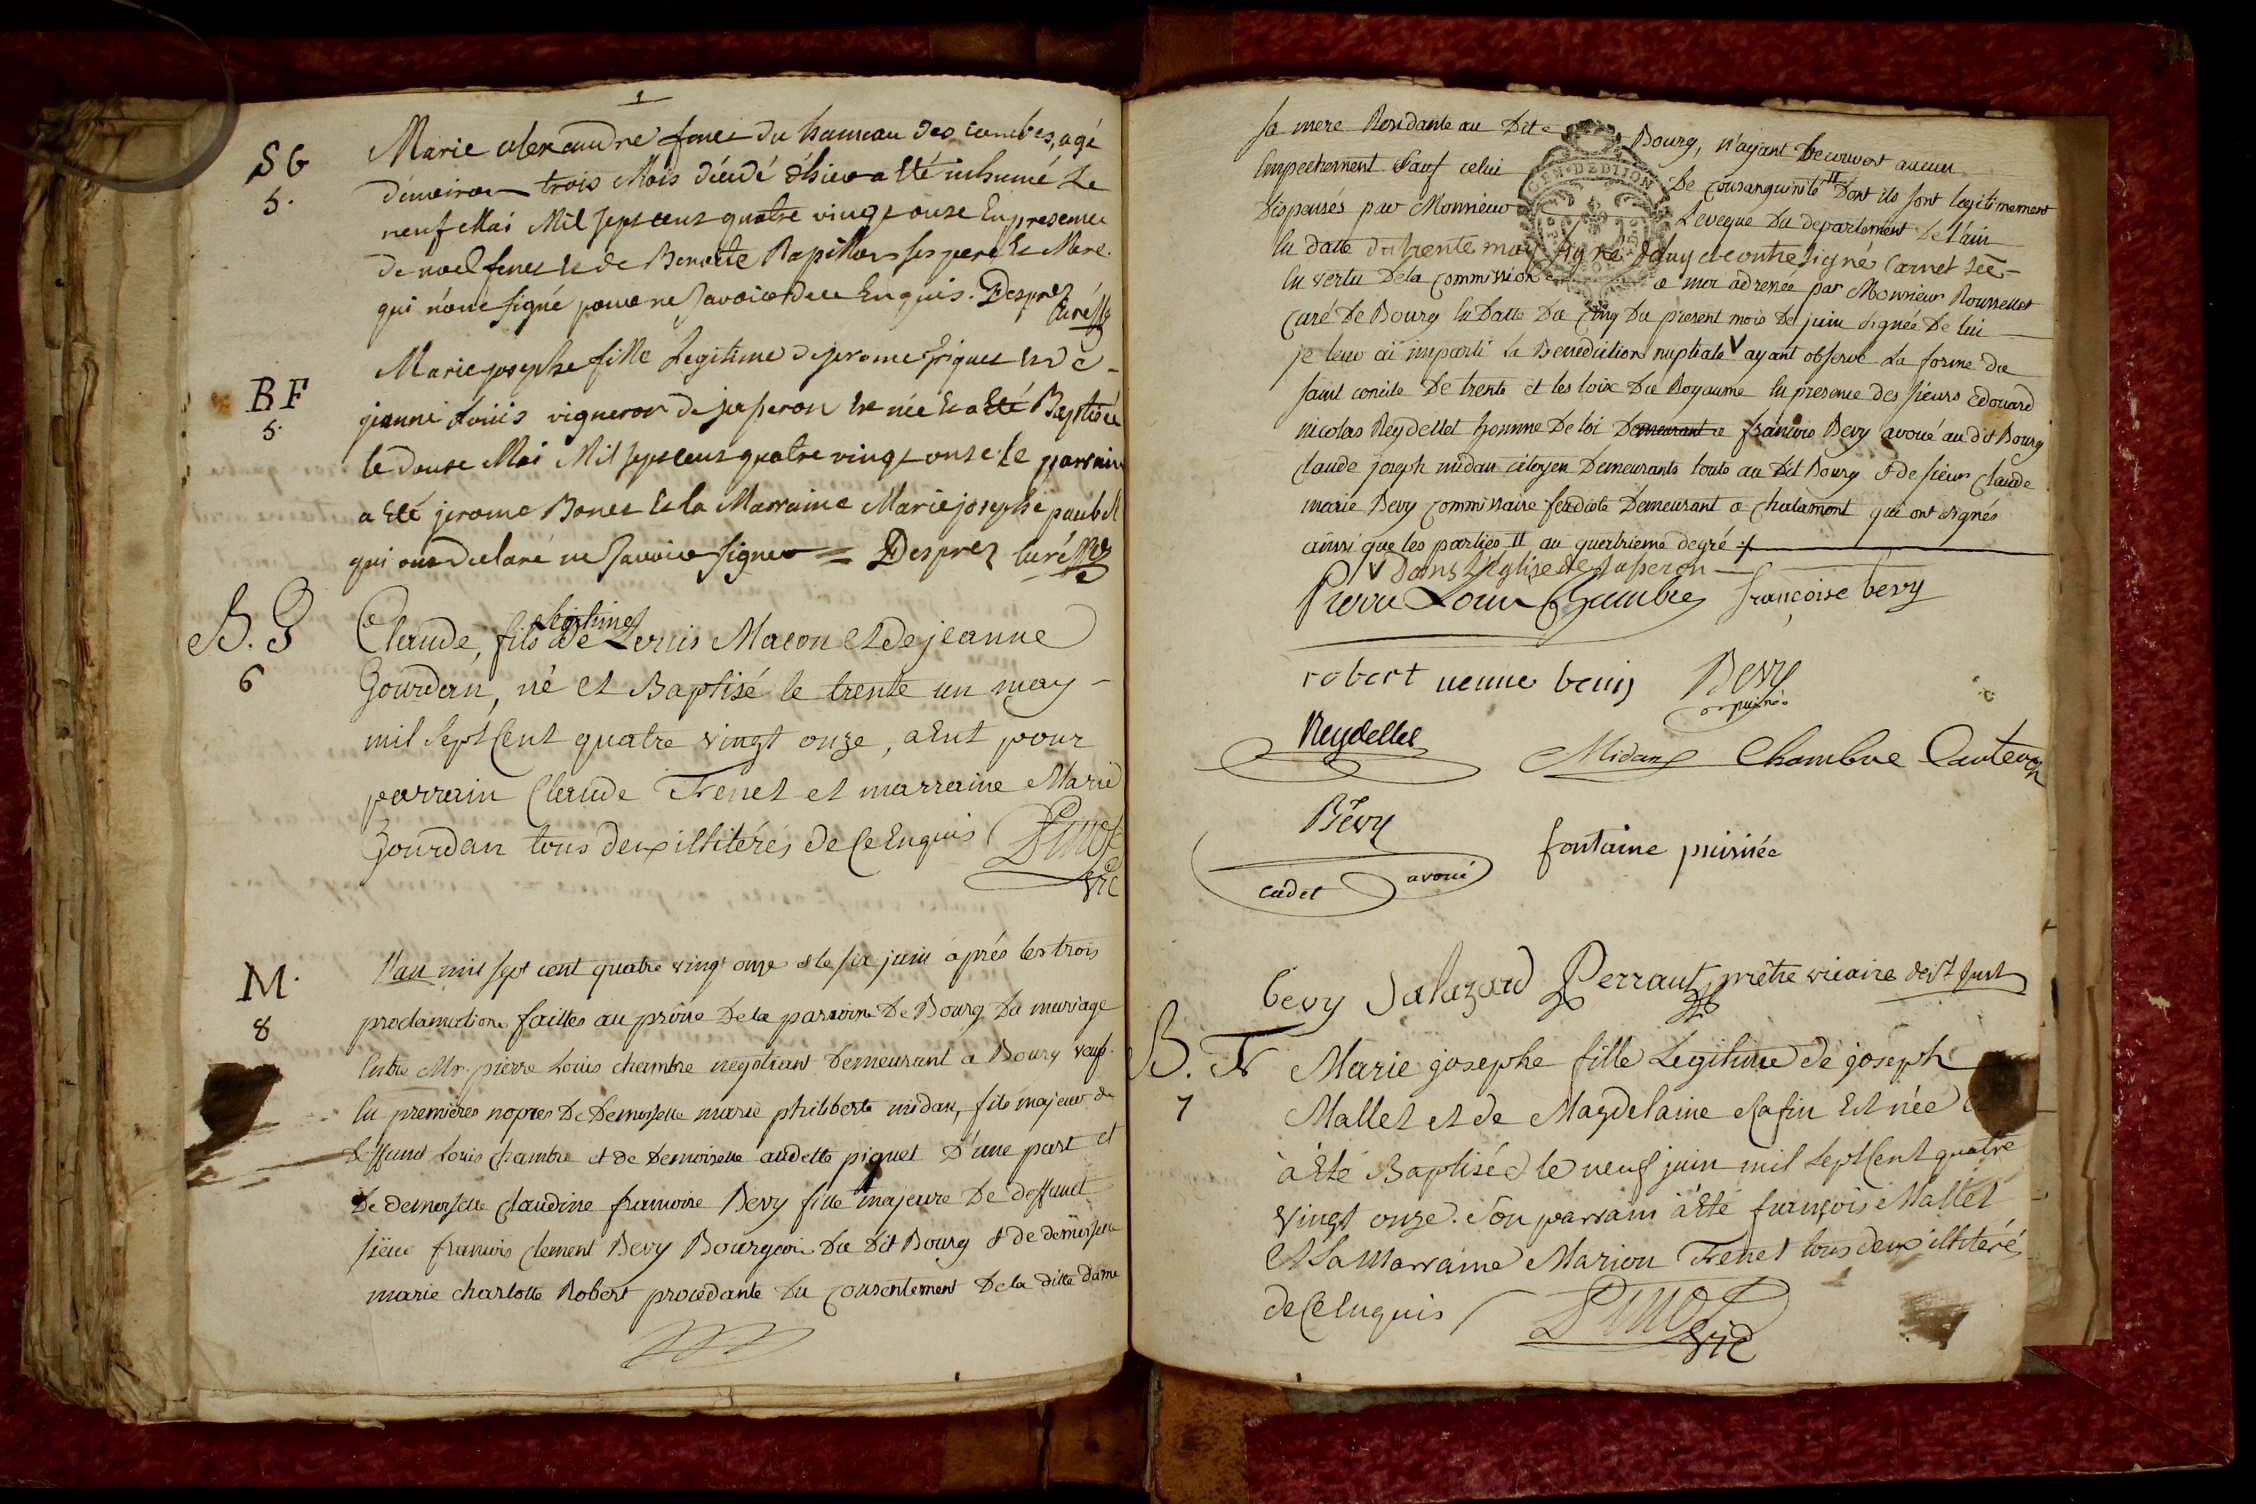 1
SG
5.
Marie alexandre fenet du hameau des combes, agé
d'environ trois Mois décédé d'hier a Eté inhumé Le
neuf Mai Mil sept cent quatre vingt onze En presence
de noel fenet et de Benoite Papillon ses pere Et Mere.
qui n'ont signé pour ne savoir dece Enquis. Desprez
Curé
BF
5.
Marie josephe fille Legitime de jerome Et de
jeanne vigneron de jasseron Est née Et a Eté Baptisée
le douze Mai Mil sept cent quatre vingt onze Le parrain
a Eté jerome Bonet Et la Marraine Marie josephe
qui ont declaré ne savoir signer = Desprez curé
B. G
6
legitime
Claude, fils de Louis Macon et de jeanne
Gourdan, né et Baptisé le trente un may
mil sept Cent quatre vingt onze, a Eut pour
parrain Claude Frenet et marraine Marie
Gourdan tous deux illitérés de Ce Enquis
vic
M.
8
L'an mil sept cent quatre vingt onze & le six juin après les trois
proclamations faittes au prône De la parroisse De Bourg Du mariage
Entre Mr. pierre Louis chambre negotiant Demeurant a Bourg veuf
En premieres nopces De Demoiselle marie philiberte midan, fils majeur de
Deffunt Louis chambre et de Demoiselle piquet D'une part et
De demoiselle claudine francoise Bevy fille majeure De deffunct
sieur francois clement Bevy Bourgeois Du Dit Bourg & de demoiselle
marie charlotte Robert procedante Du consentement De la ditte dame
sa mere Residante au Dit Bourg, n'ayant Decouvert aucun
Empechement Sauf celui De consanguinité II Dont ils sont legitimement
Dispensés par Monsieur L'eveque Du departement De l'ain
En datte du trente may signé & contresigné Carnet
En vertu De la commission a moi adressée par Monsieur Rousselet
Curé De Bourg En Datte Du cinq Du présent mois De juin signée De lui
je leur ai imparti La Benediction nuptiale V ayant observé La forme du
saint concile De trente et les loix Du Royaume En presence des sieurs Edouard
nicolas Reydellet homme De loi Demeurant a francois Bevy avoué au dit Bourg
claude joseph midan citoyen Demeurants touts au Dit Bourg & de sieur Claude
marie Bevy commissaire feudiste Demeurant a chalamont qui ont signés
ainsi que les parties II au quatrieme degré
V Dans L'église de Jasseron
Pierre Louis Chambre françoise bevy
robert veuve bevy Bevy
Reydellet Midan Chambre
Bevy
cadet avoué
fontaine puisnée
bevy Salazard Perraut prêtre vicaire de St Just
B. Fr
7
Marie josephe fille Légitime de joseph
Mallet et de Magdelaine Est née
à Eté Baptisée le neuf juin mil sept Cent quatre
vingt onze. Son parrain à Eté françois Mallet
et La Marraine Marion Frenet tous deux illitéré
de Ce Enquis
vic